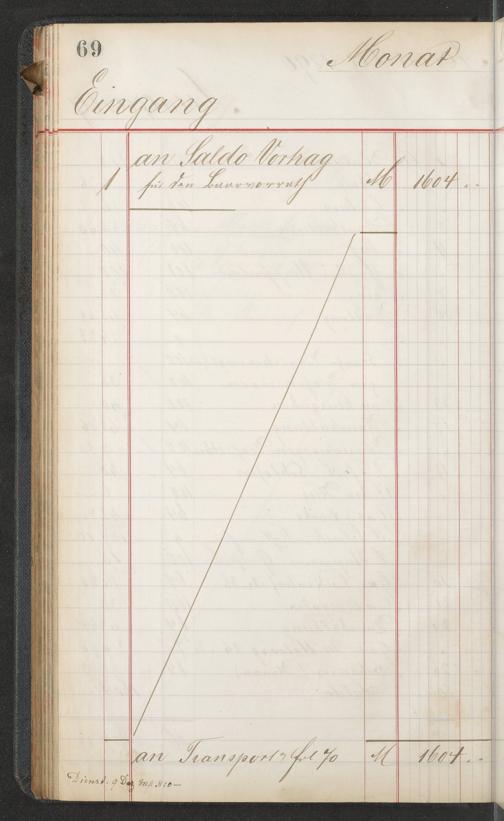 69
Monat
Eingang
an Saldo Vorhag
1 für den Baarvorrath M 1604 ..
an Transport fol 70 M 1604 ..
Dienst. 9 Dez